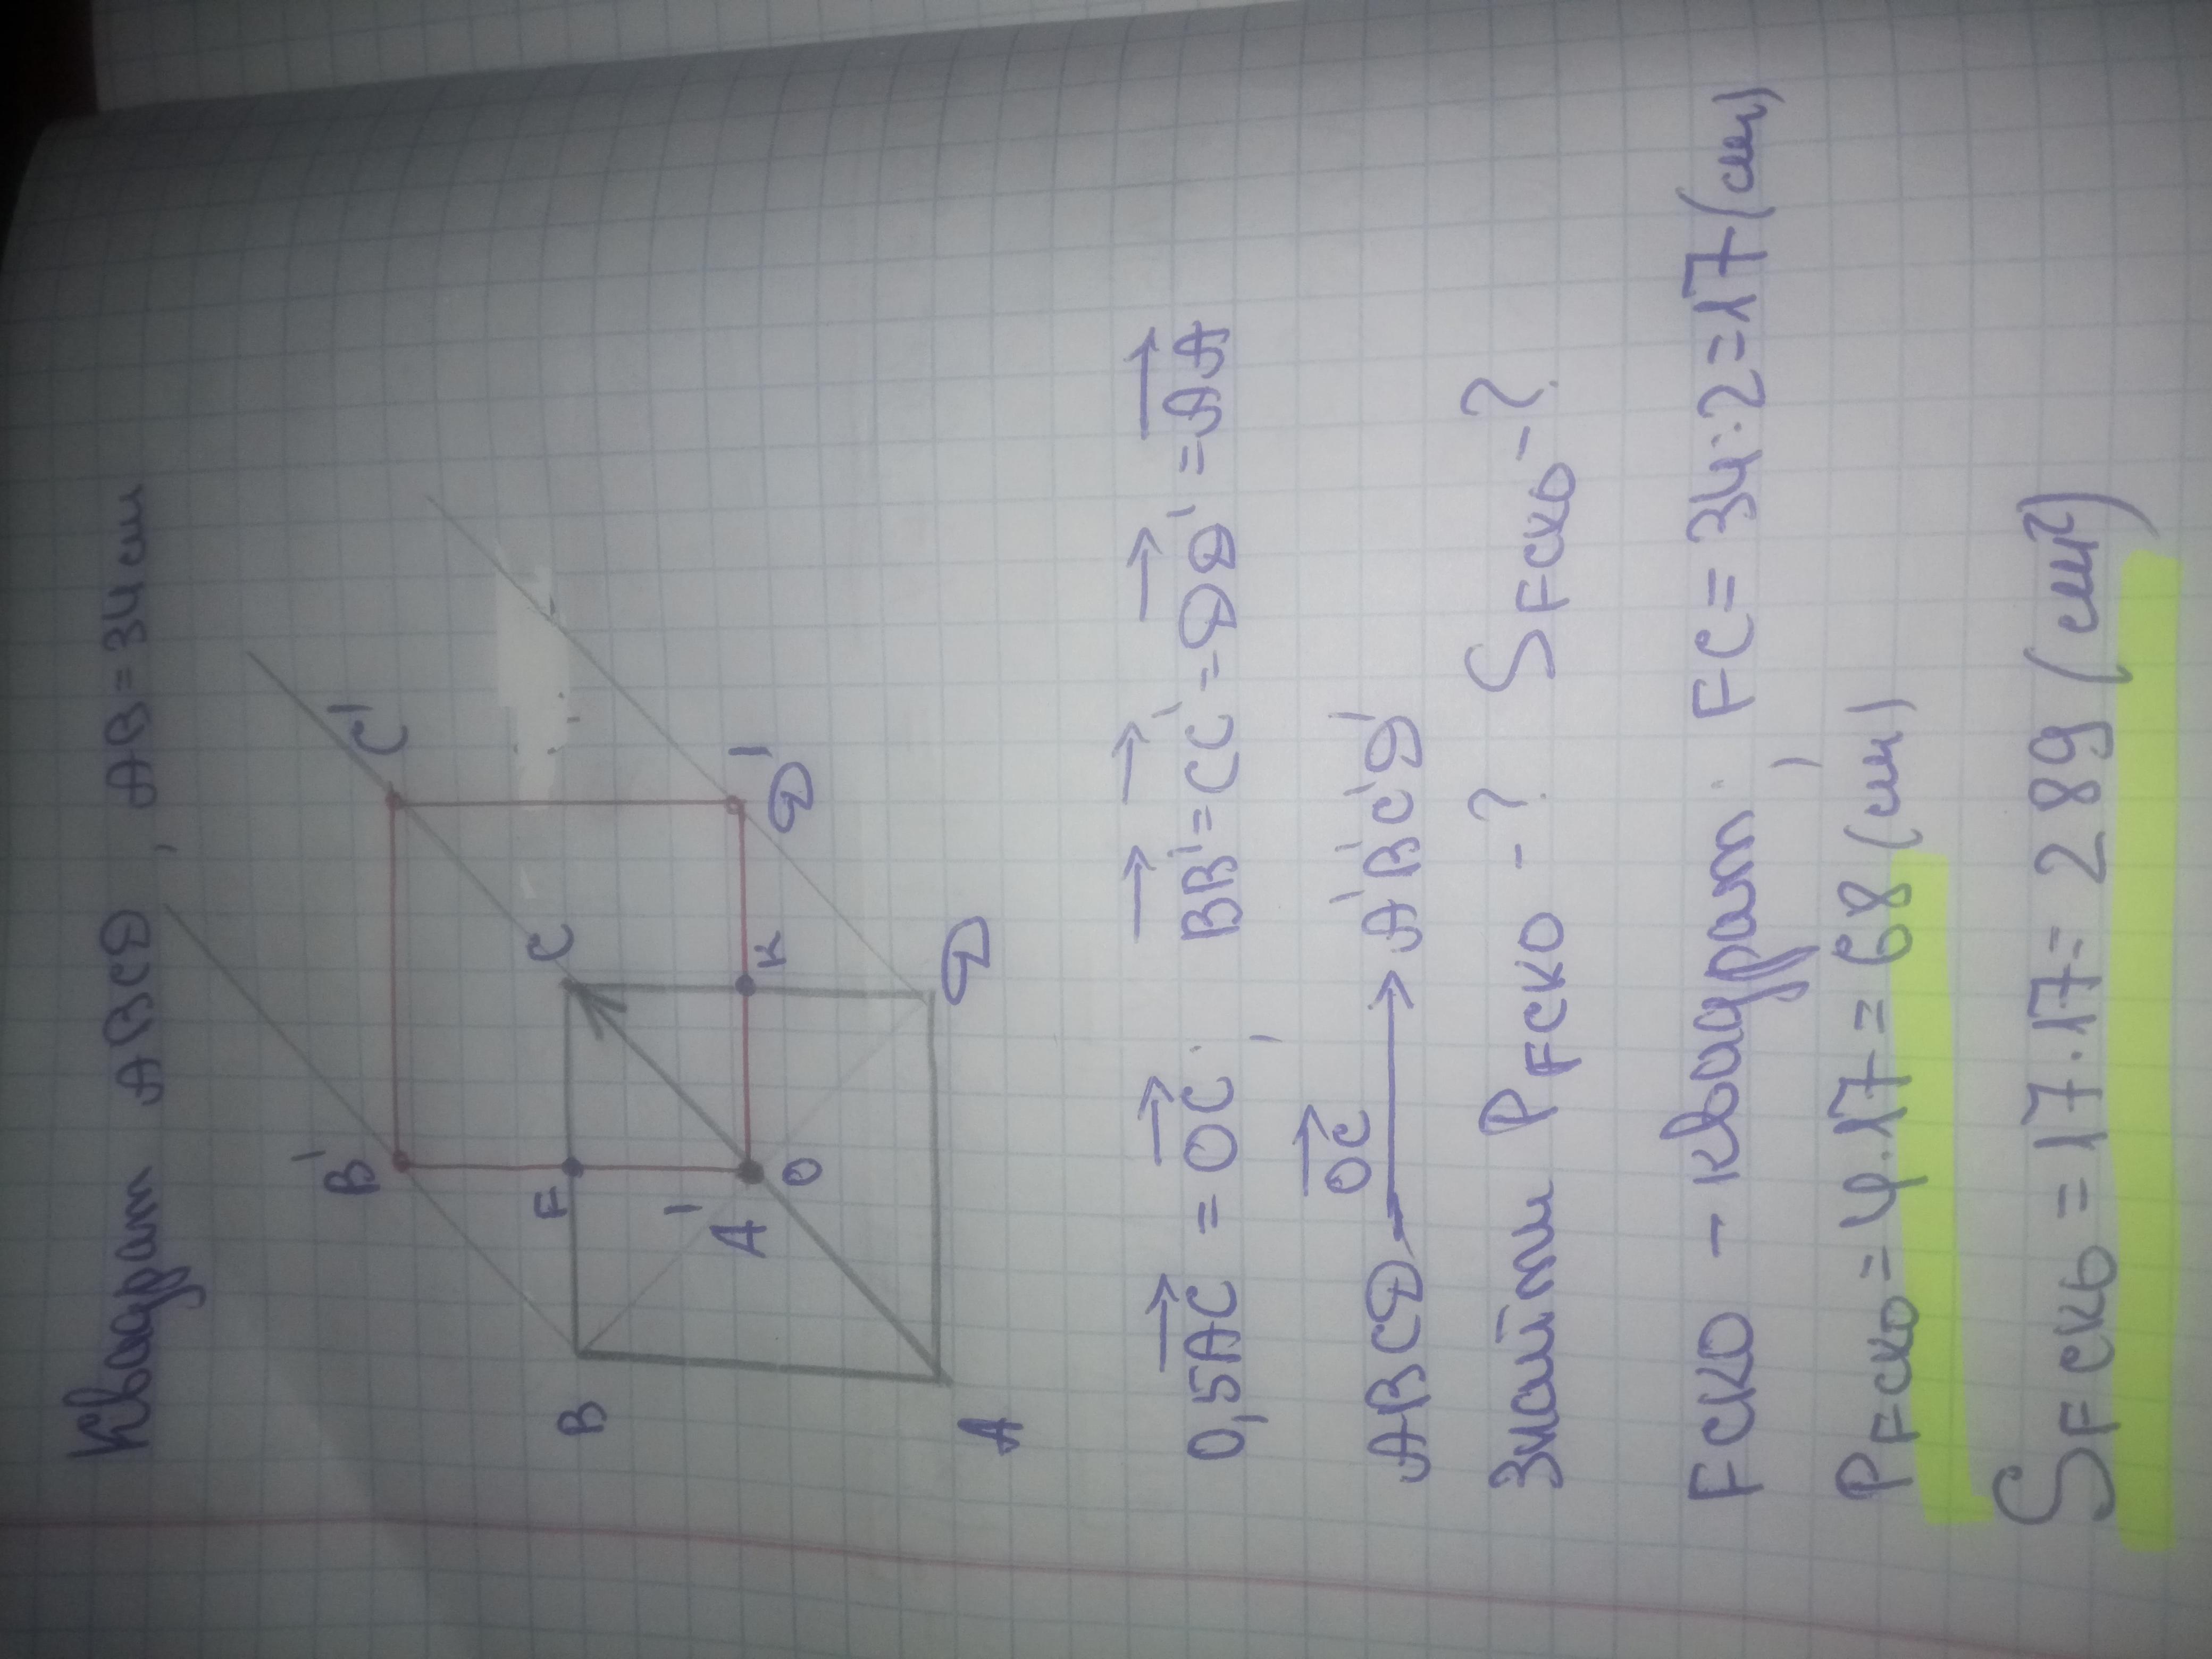 Квадрат ABCD, AB=34см
B' C'
F C
B A' O K D'
A D
0,5AC = OC. BB'=CC'=DD'=AA
OC
ABCD → A'B'C'D'
Знайти PFCKO -? SFCKO -?
FCKO - квадрат. FC = 34:2=17(см)
PFCKO = 4.17= 68 (см)
SFCKO = 17.17= 289 (см²)